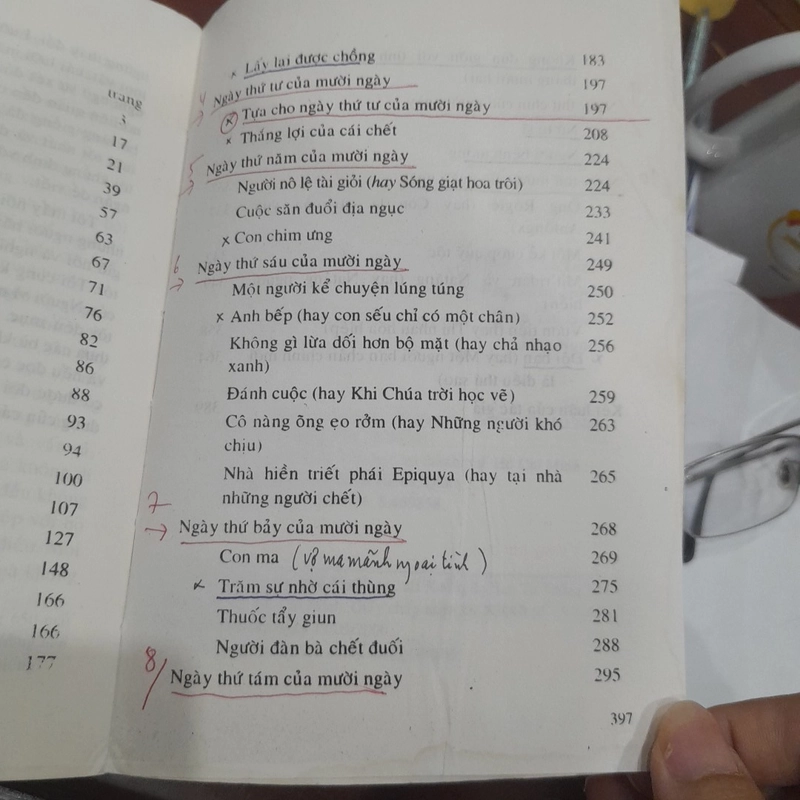 trang
3
17
21
39
57
63
67
71
76
82
86
88
93
94
100
107
127
148
166
166
177
× Lấy lại được chồng 183
4 Ngày thứ tư của mười ngày 197
× Tựa cho ngày thứ tư của mười ngày 197
× Thắng lợi của cái chết 208
5 Ngày thứ năm của mười ngày 224
Người nô lệ tài giỏi (hay Sóng giạt hoa trôi) 224
Cuộc săn đuổi địa ngục 233
× Con chim ưng 241
6 Ngày thứ sáu của mười ngày 249
→ Một người kể chuyện lúng túng 250
× Anh bếp (hay con sếu chỉ có một chân) 252
Không gì lừa dối hơn bộ mặt (hay chả nhạo 256
xanh)
Đánh cuộc (hay Khi Chúa trời học vẽ) 259
Cô nàng õng ẹo rởm (hay Những người khó 263
chịu)
Nhà hiền triết phái Epiquya (hay tại nhà 265
những người chết)
7
→ Ngày thứ bảy của mười ngày 268
Con ma (vợ ma mãnh ngoại tình) 269
× Trăm sự nhờ cái thùng 275
Thuốc tẩy giun 281
Người đàn bà chết đuối 288
8/ Ngày thứ tám của mười ngày 295
397